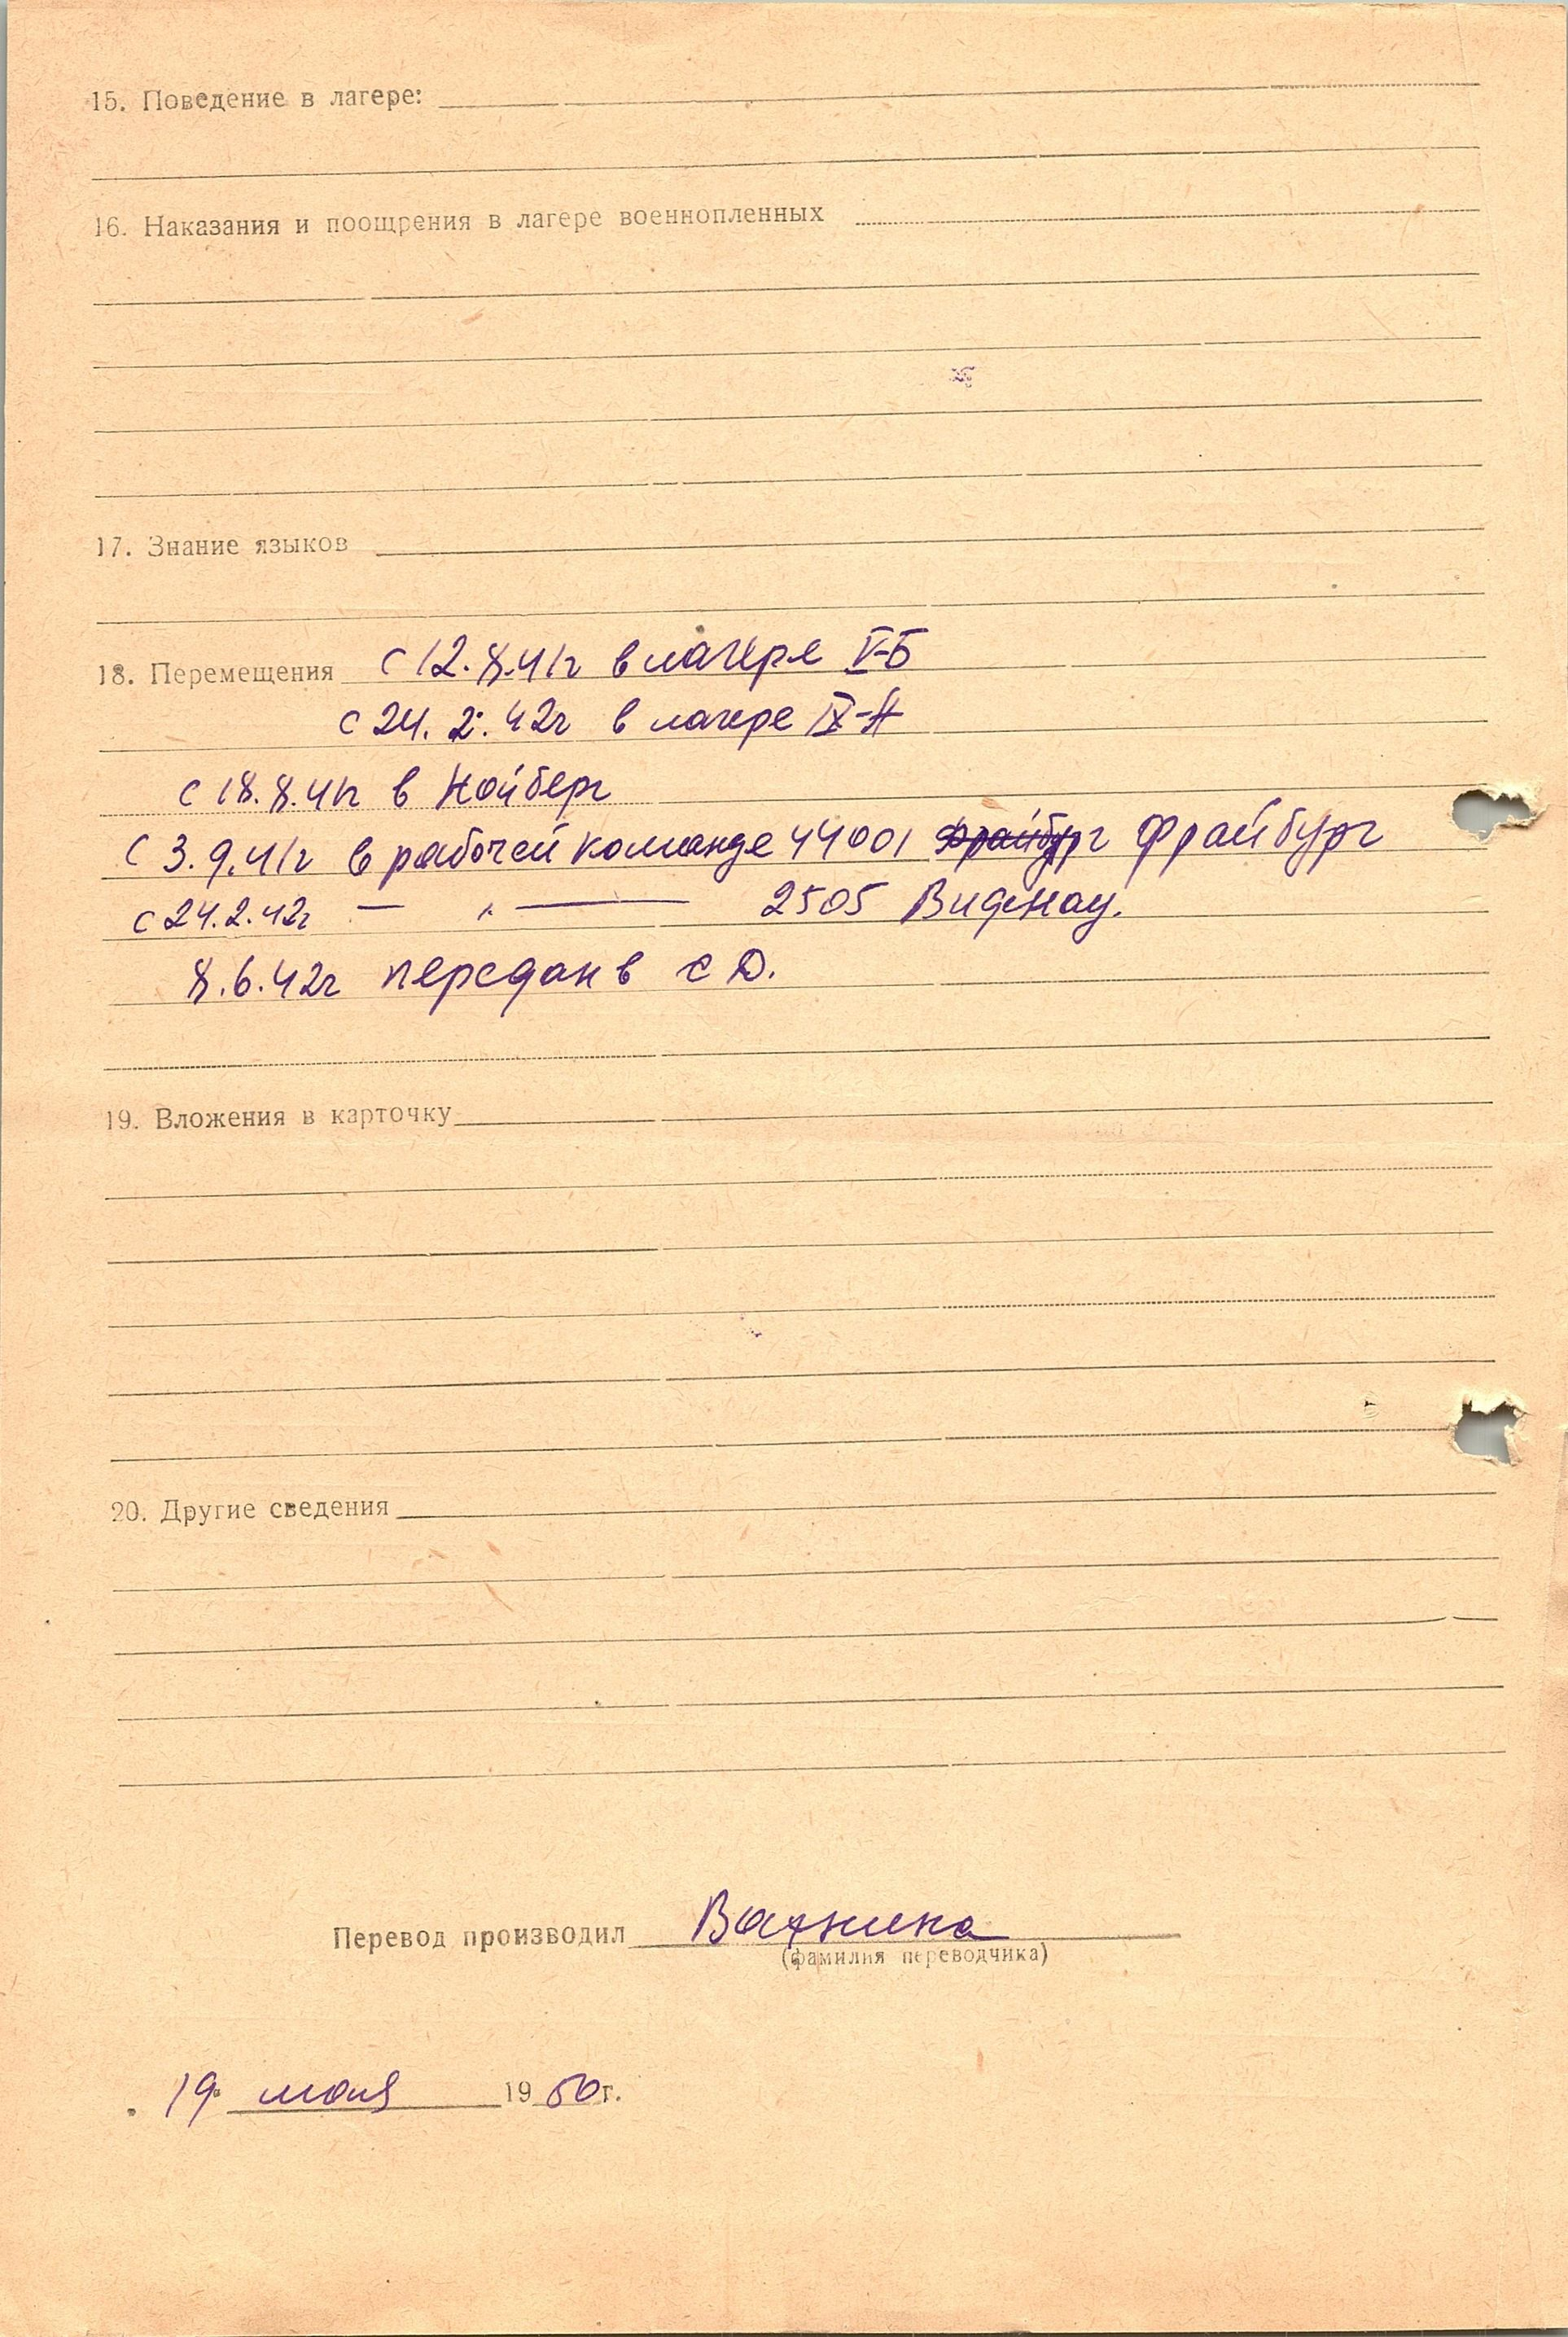 15. Поведение в лагере:
16. Наказания и поощрения в лагере военнопленных
17. Знание языков
18. Перемещения с 12.8.41г в лагере V-Б
с 24.2.42г в лагере IX-А
с 18.8.41г в Нойберг
с 3.9.41г в рабочей команде 44001 Фрайбург Фрайбург
с 24.2.42г — „ — 2505 Видснау.
8.6.42г передан в СД.
19. Вложения в карточку
20. Другие сведения
Перевод производил Вахнина
(фамилия переводчика)
19 мая 1950г.